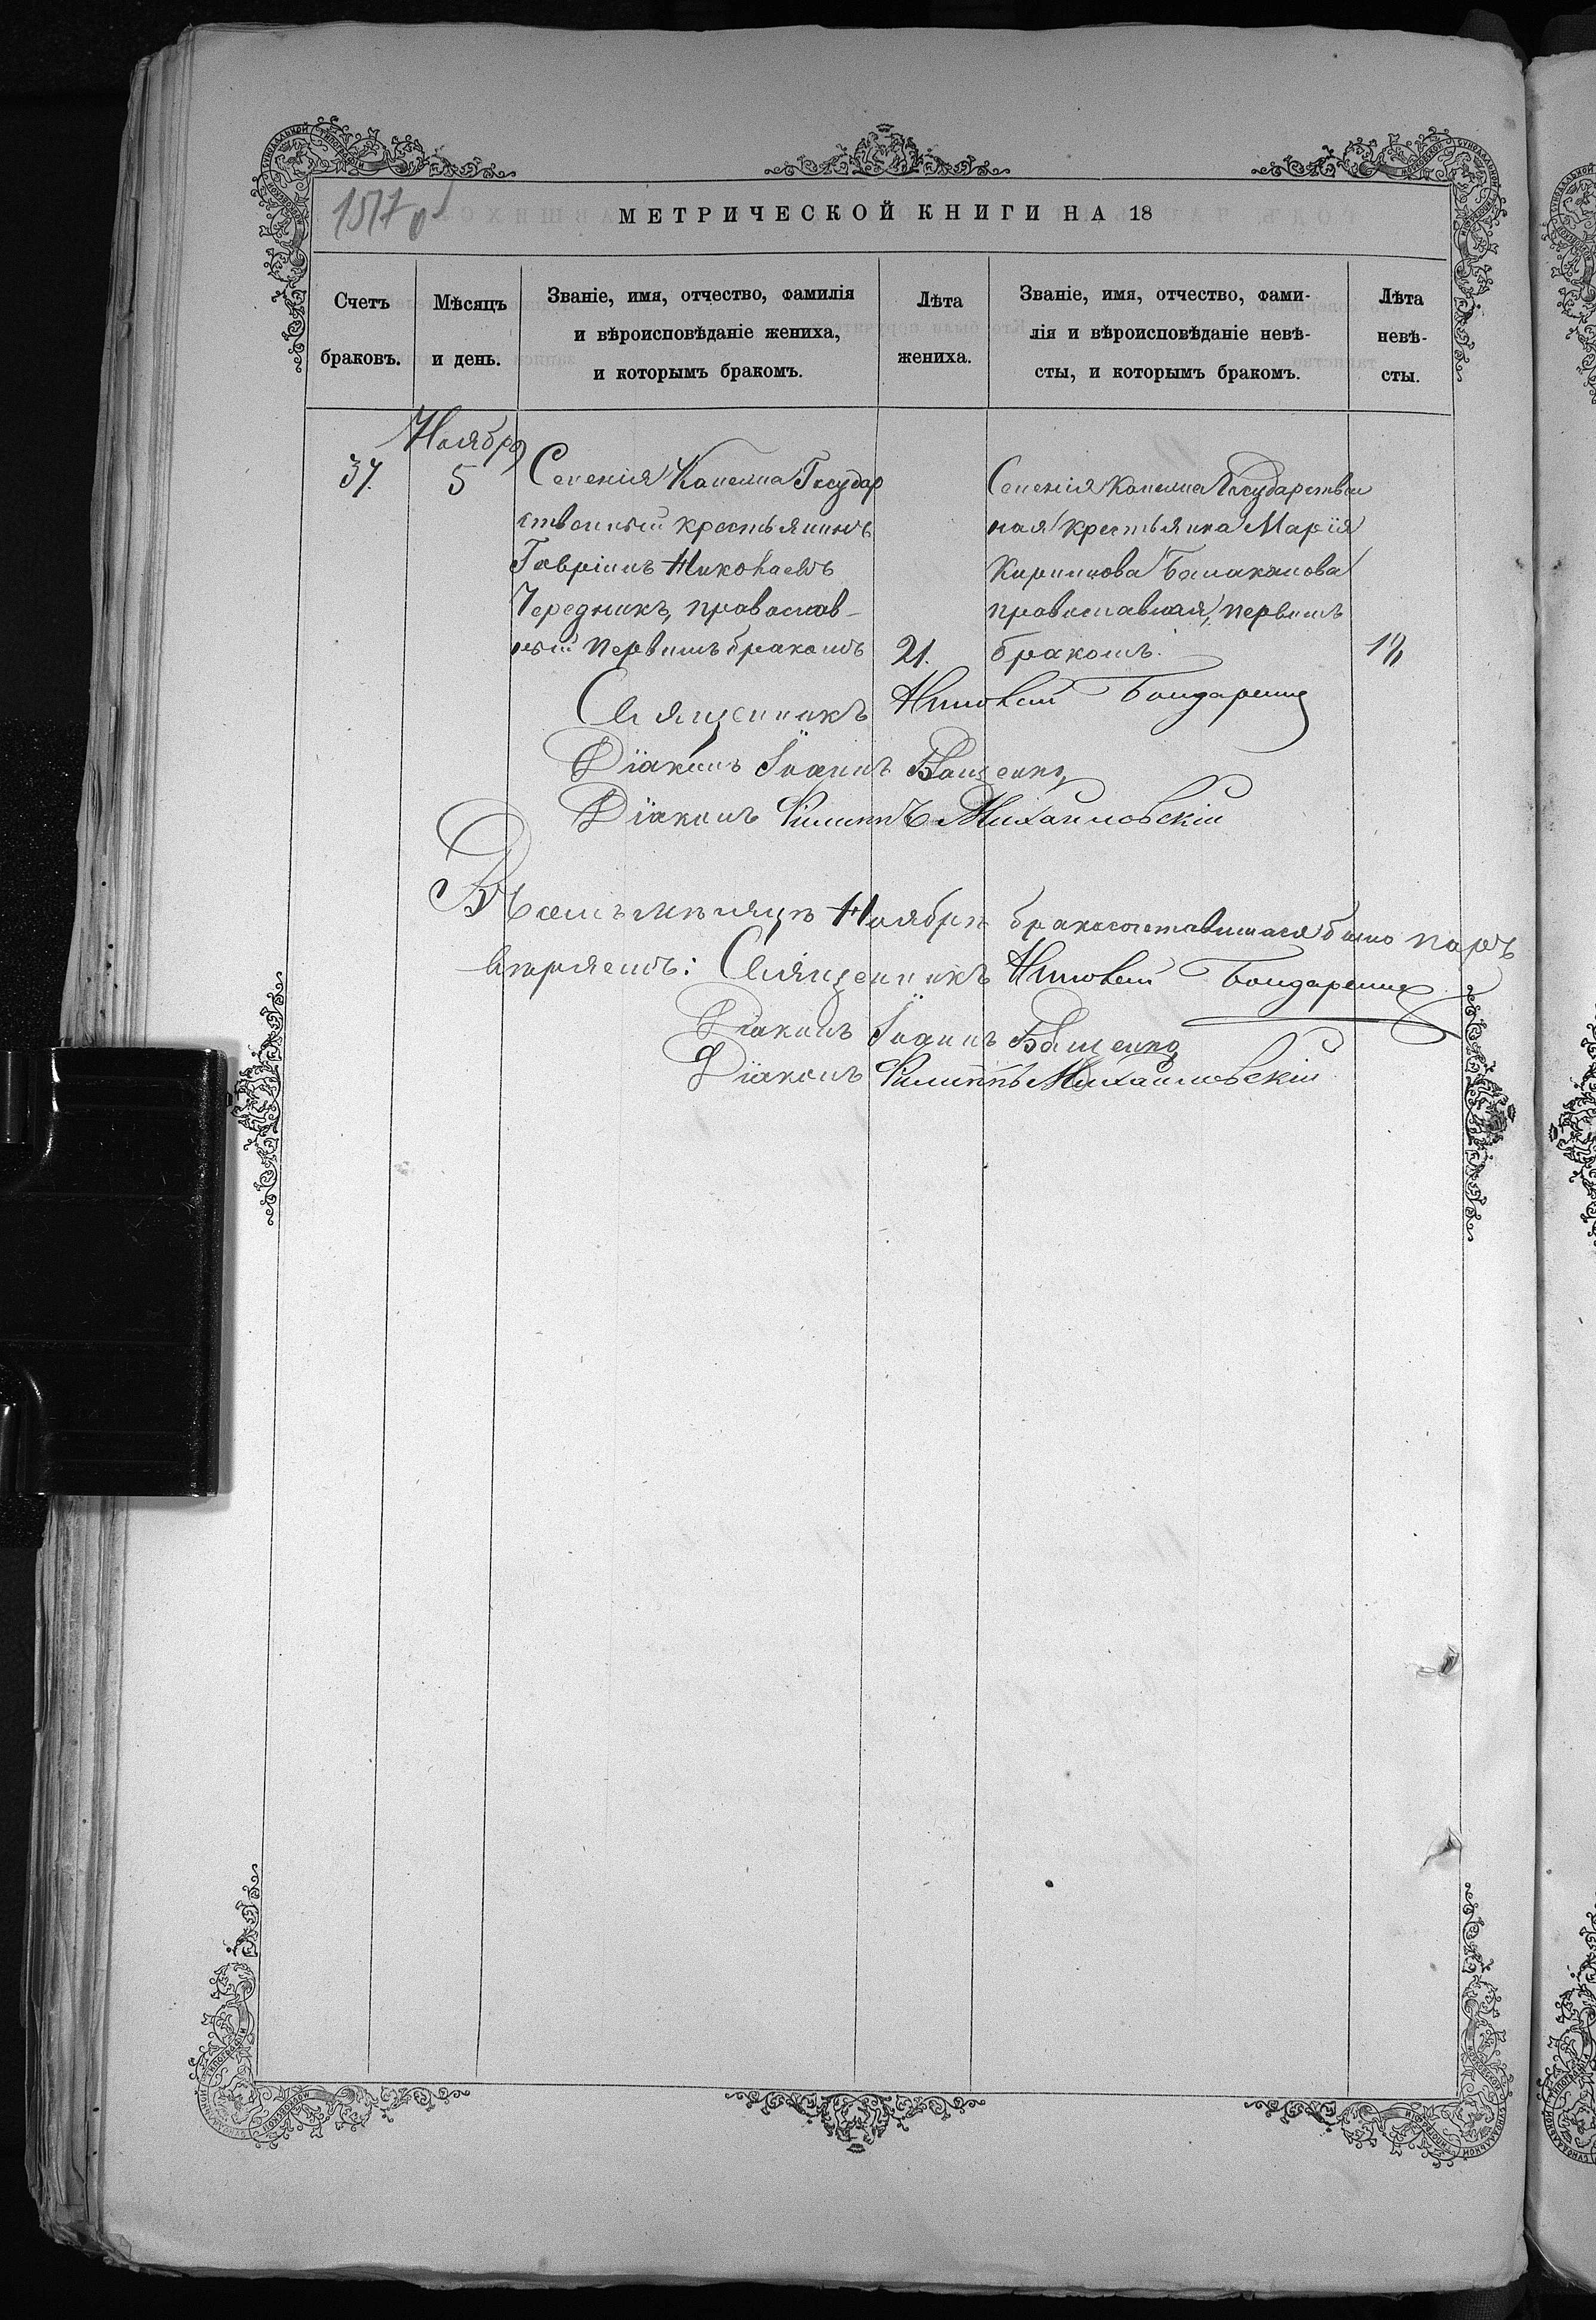 МЕТРИЧЕСКОЙ КНИГИ НА 18
Счетъ браковъ.
Мѣсяцъ и день.
Званіе, имя, отчество, фамилія
и вѣроисповѣданіе жениха,
и которымъ бракомъ.
Лѣта
жениха.
Званіе, имя, отчество, фами-
лія и вѣроисповѣданіе невѣ-
сты, и которымъ бракомъ.
Лѣта
невѣ-
сты.
Ноября
37.
5
Селенія Капелна Государ
ственный крестьянинъ
Гавріилъ Николаевъ
Чередникъ, православ-
ный первымъ бракомъ
21.
Селенія Капелна Государствен
ная крестьянка Марія
Кирилова Балаканова
православная, первымъ
бракомъ.
Священникъ Бондаренко
Діаконъ Іоаннъ Ващенко
Діаконъ Филиппъ Михайловскій
Ноябрѣ бракосочетавшихся было паръ
Священникъ Бондаренко
Діаконъ Іоаннъ Ващенко
Діаконъ Филиппъ Михайловскій